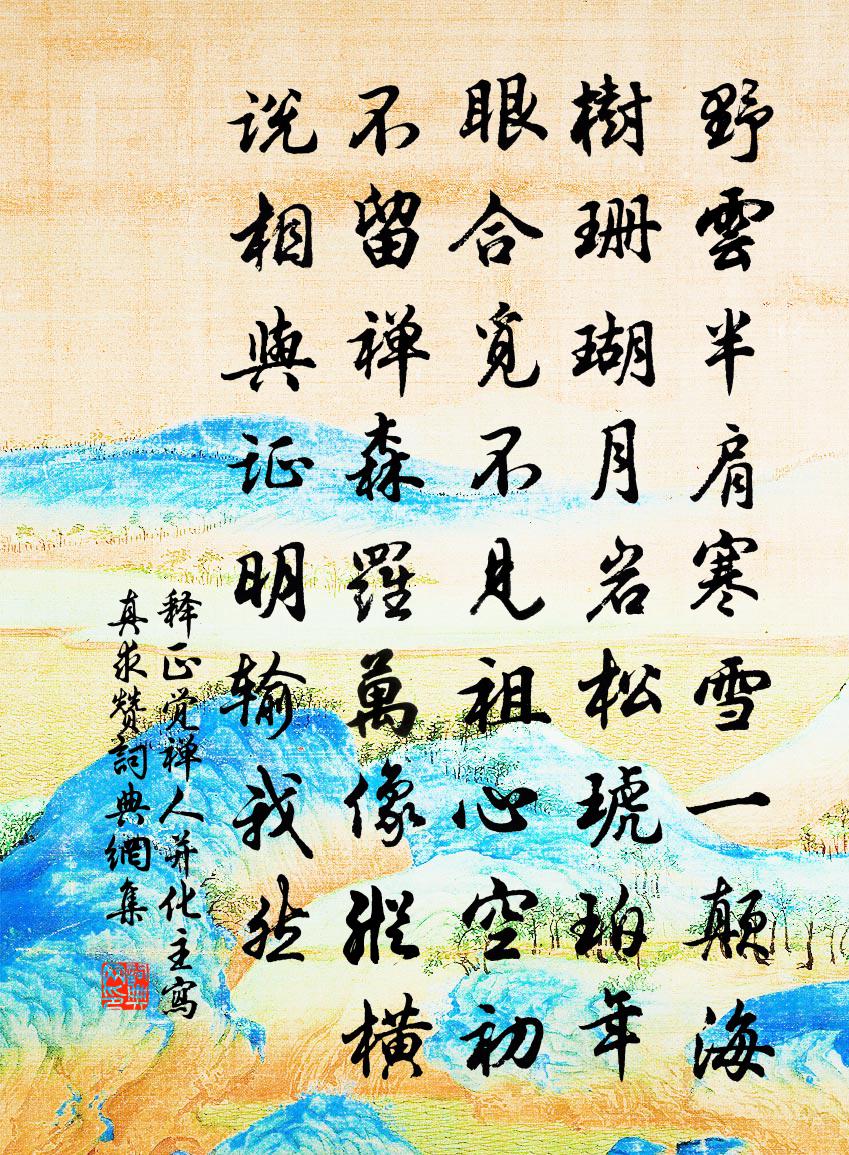 野雲半肩寒雪一颠海
樹珊瑚月岩松琥珀年
眼合覓不見祖心空初
不留禅森羅萬像縱横
说相與证明输我然
释正觉禅人并化主寫
真求赞詞典網集